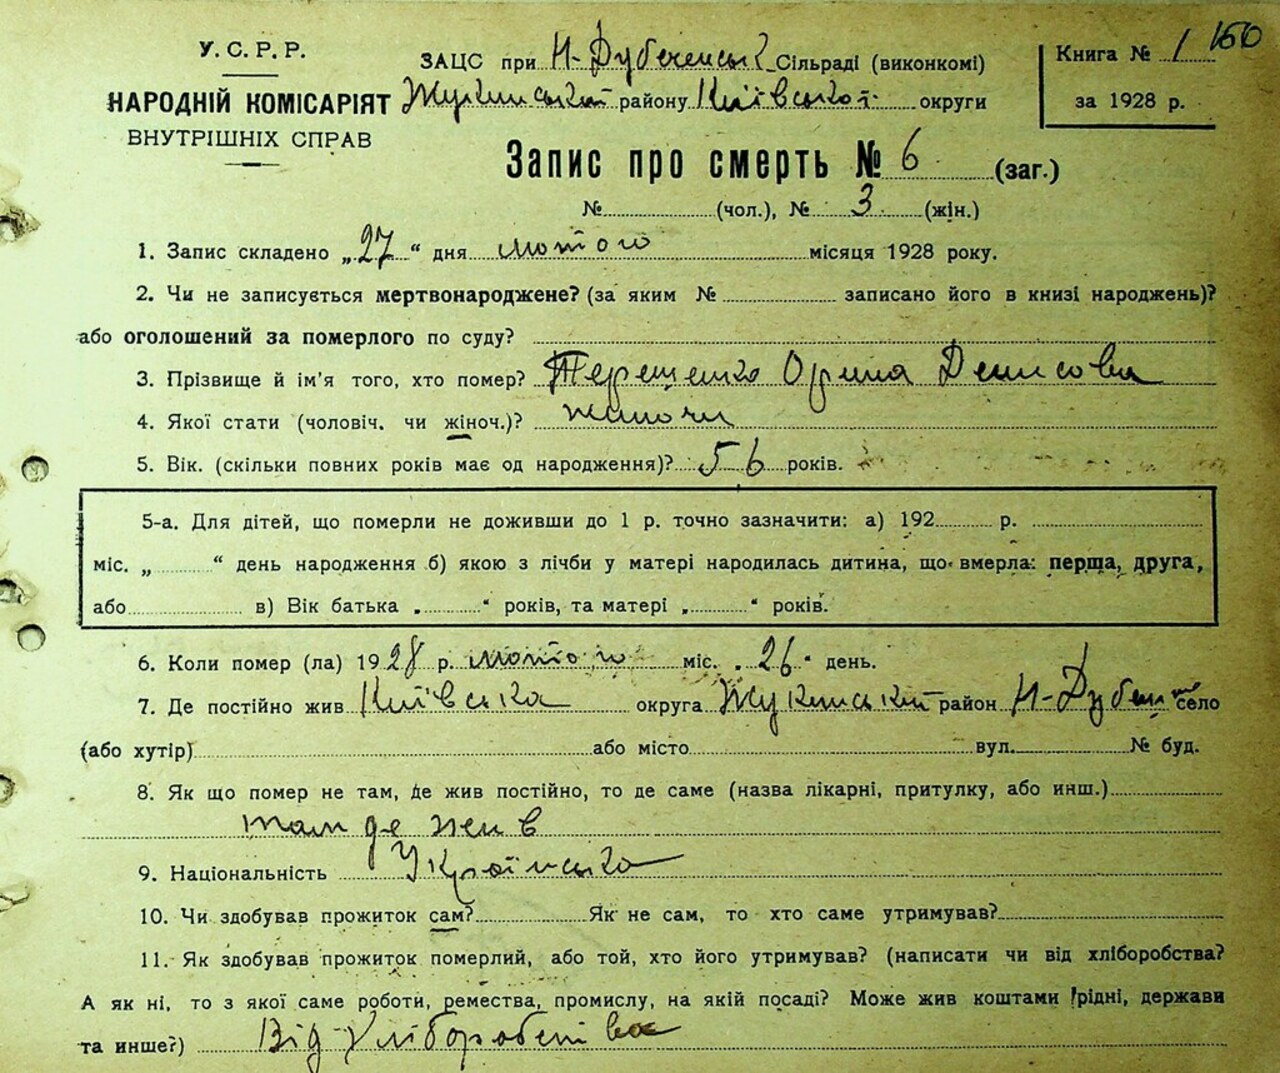 У.С.Р.Р.
НАРОДНІЙ КОМІСАРІЯТ
ВНУТРІШНІХ СПРАВ
ЗАЦС при Н-Дубеченській Сільраді (виконкомі)
Жукинський району Київської округи
Книга № 1 160
за 1928 р.
Запис про смерть № 6 (заг.)
№ (чол.), № 3 (жін.)
1. Запис складено „27“ дня лютого місяця 1928 року.
2. Чи не записується мертвонароджене? (за яким № записано його в книзі народжень)?
або оголошений за померлого по суду?
3. Прізвище й ім'я того, хто помер? Терещенко Орина Денисова
4. Якої стати (чоловіч. чи жіноч.)? жіночи
5. Вік. (скільки повних років має од народження)? 56 років.
5-а. Для дітей, що померли не доживши до 1 р. точно зазначити: а) 192 р.
міс. „ “ день народження б) якою з лічби у матері народилась дитина, що вмерла: перша, друга,
або в) Вік батька „ “ років, та матері „ “ років.
6. Коли помер (ла) 1928 р. лютого міс. „26“ день.
7. Де постійно жив Київська округа Жукинський район Н-Дубеч село
(або хутір) або місто вул. № буд.
8. Як що помер не там, де жив постійно, то де саме (назва лікарні, притулку, або инш.)
там де жив
9. Національність Українська
10. Чи здобував прожиток сам? Як не сам, то хто саме утримував?
11. Як здобував прожиток померлий, або той, хто його утримував? (написати чи від хліборобства?
А як ні, то з якої саме роботи, ремества, промислу, на якій посаді? Може жив коштами рідні, держави
та инше?) Від хліборобства